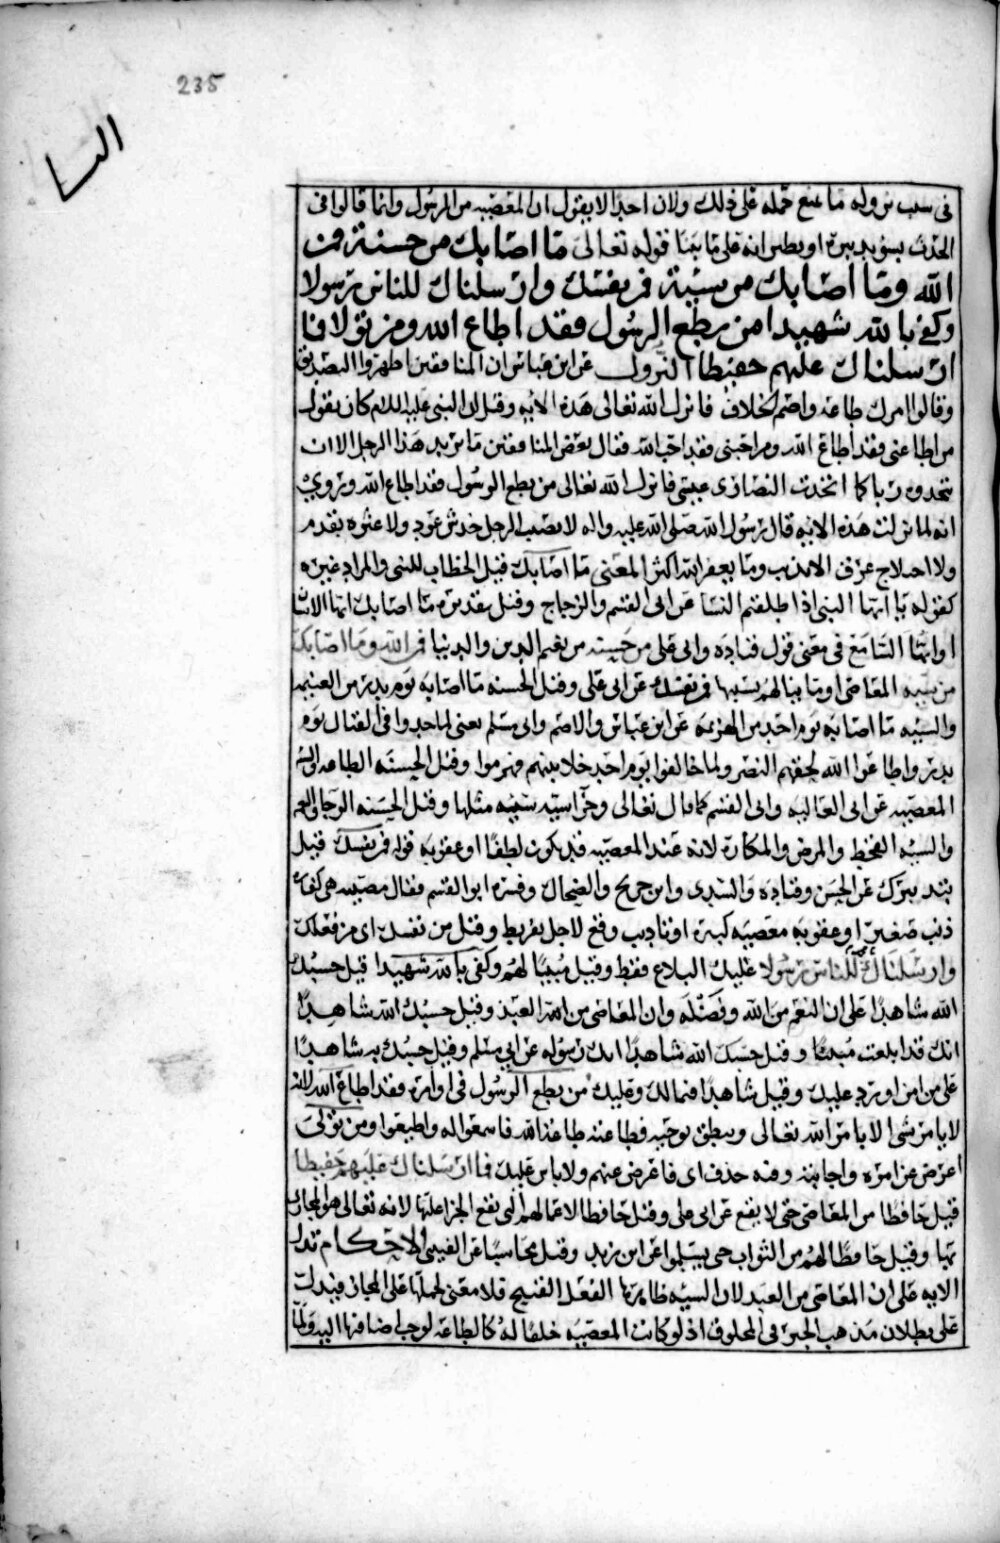 235
النسا
في سبب نزوله ما يمنع حمله على ذلك ولان احدا لا يقول ان المعصيه من الرسول وانما قالوا في
الجدب بسو تدبيره او تطيرا به على ما بينا قوله تعالى ما اصابك من حسنة فمن
الله وما اصابك من سيئة فمن نفسك وارسلناك للناس رسولا
وكفى بالله شهيدا من يطع الرسول فقد اطاع الله ومن تولا فما
ارسلناك عليهم حفيظا النزول عن ابن عباس ان المنافقين اظهروا التصديق
وقالوا امرك طاعه واضمروا الخلاف فانزل الله تعالى هذه الايه وقيل ان النبي عليه السلام كان يقول
من اطاعني فقد اطاع الله ومن احبني فقد احب الله فقال بعض المنافقين ما يريد هذا الرجل الا ان
نتخذه ربا كما اتخذت النصارى عيسى فانزل الله تعالى من يطع الرسول فقد اطاع الله وتروي
انه لما نزلت هذه الايه قال رسول الله صلى الله عليه واله لا يصيب الرجل خدش عود ولا عثره بقدم
ولا اختلاج عرق الا بذنب وما يعفو الله اكثر المعنى ما اصابك قيل الخطاب للنبي والمراد غيره
كقوله يا ايها النبي اذا طلقتم النسا عن ابي القسم والزجاج وقيل تقديره ما اصابك ايها الانسان
او ايها السامع في معنى قول قتاده وابي علي من حسنه من نعيم الدين والدنيا فمن الله وما اصابك
من سيئه المعاصي وما ينالهم بسببها فمن نفسك عن ابي علي وقيل الحسنه ما اصابه يوم بدر من الغنيمه
والسيئه ما اصابه يوم احد من الهزيمه عن ابن عباس والاصم وابي مسلم يعني لما جدوا في القتال يوم
بدر واطاعوا الله لحقهم النصر ولما خالفوا يوم احد خلا بينهم فهزموا وقيل الحسنه الطاعه والسيئه
المعصيه عن ابي العاليه وابي القسم كما قال تعالى وجزا سيئه سيئه مثلها وقيل الحسنه الرخا والنعم
والسيئه القحط والمرض والمكاره لانه عند المعصيه قد يكون لطفا او عقوبه قوله فمن نفسك قيل
بذنبك عن الحسن وقتاده والسدي وابن جريج والضحاك وفسره ابو القسم فقال مصيبه هي كفاره
ذنب صغير او عقوبه معصيه كبيره او تاديب وقع لاجل تفريط وقيل من نفسك اي من فعلك
وارسلناك للناس رسولا عليك البلاغ فقط وقيل مبينا لهم وكفى بالله شهيدا قيل حسبك
الله شاهدا على ان النعم من الله وفضله وان المعاصي من العبد وقيل حسبك الله شاهدا
انك قد ابلغت مبينا وقيل حسبك الله شاهدا انك رسوله عن ابي مسلم وقيل حسبك به شاهدا
على من امن او رد عليك وقيل شاهدا فيما لك وعليك من يطع الرسول في اوامره فقد اطاع الله لانه
لا يامر شي الا بامر الله تعالى وينطق بوحيه فطاعته طاعة الله فاسمعوا له واطيعوا ومن تولى
اعرض عن امره واجابته وفيه حذف اي فاعرض عنهم ولا باس عليك فما ارسلناك عليهم حفيظا
قيل حافظا من المعاصي حتى لا يقع عن ابي علي وقيل حافظا لاعمالهم التي يقع الجزا عليها لانه تعالى هو المجازي
بها وقيل حافظا لهم من الثواب حتى يسلموا عن ابن زيد وقيل محاسبا عن القتيبي الاحكام تدل
الايه على ان المعاصي من العبد لان السيئه ظاهرها الفعل القبيح فلا معنى لحملها على المجاز فيدل
على بطلان مذهب الجبر في المخلوق اذ لو كانت المعصيه خلقا له كالطاعه لوجب اضافتها اليه ولما